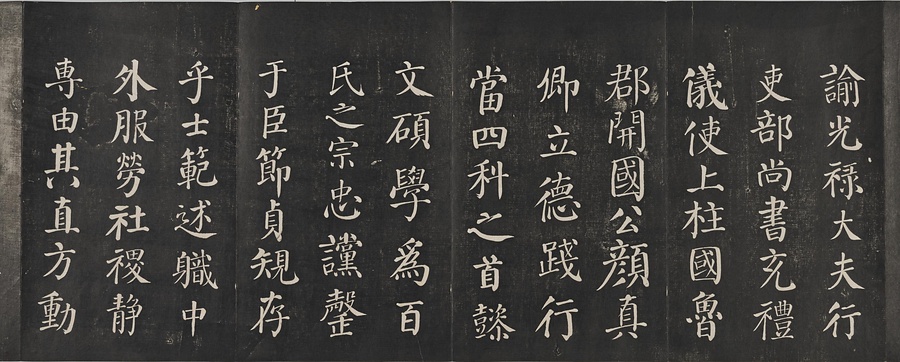 諭光禄大夫行
吏部尚書充禮
儀使上柱國魯
郡開國公顔真
卿立德踐行
當四科之首懿
文碩學爲百
氏之宗忠讜罄
于臣節貞規存
乎士範述職中
外服勞社稷静
専由其直方動